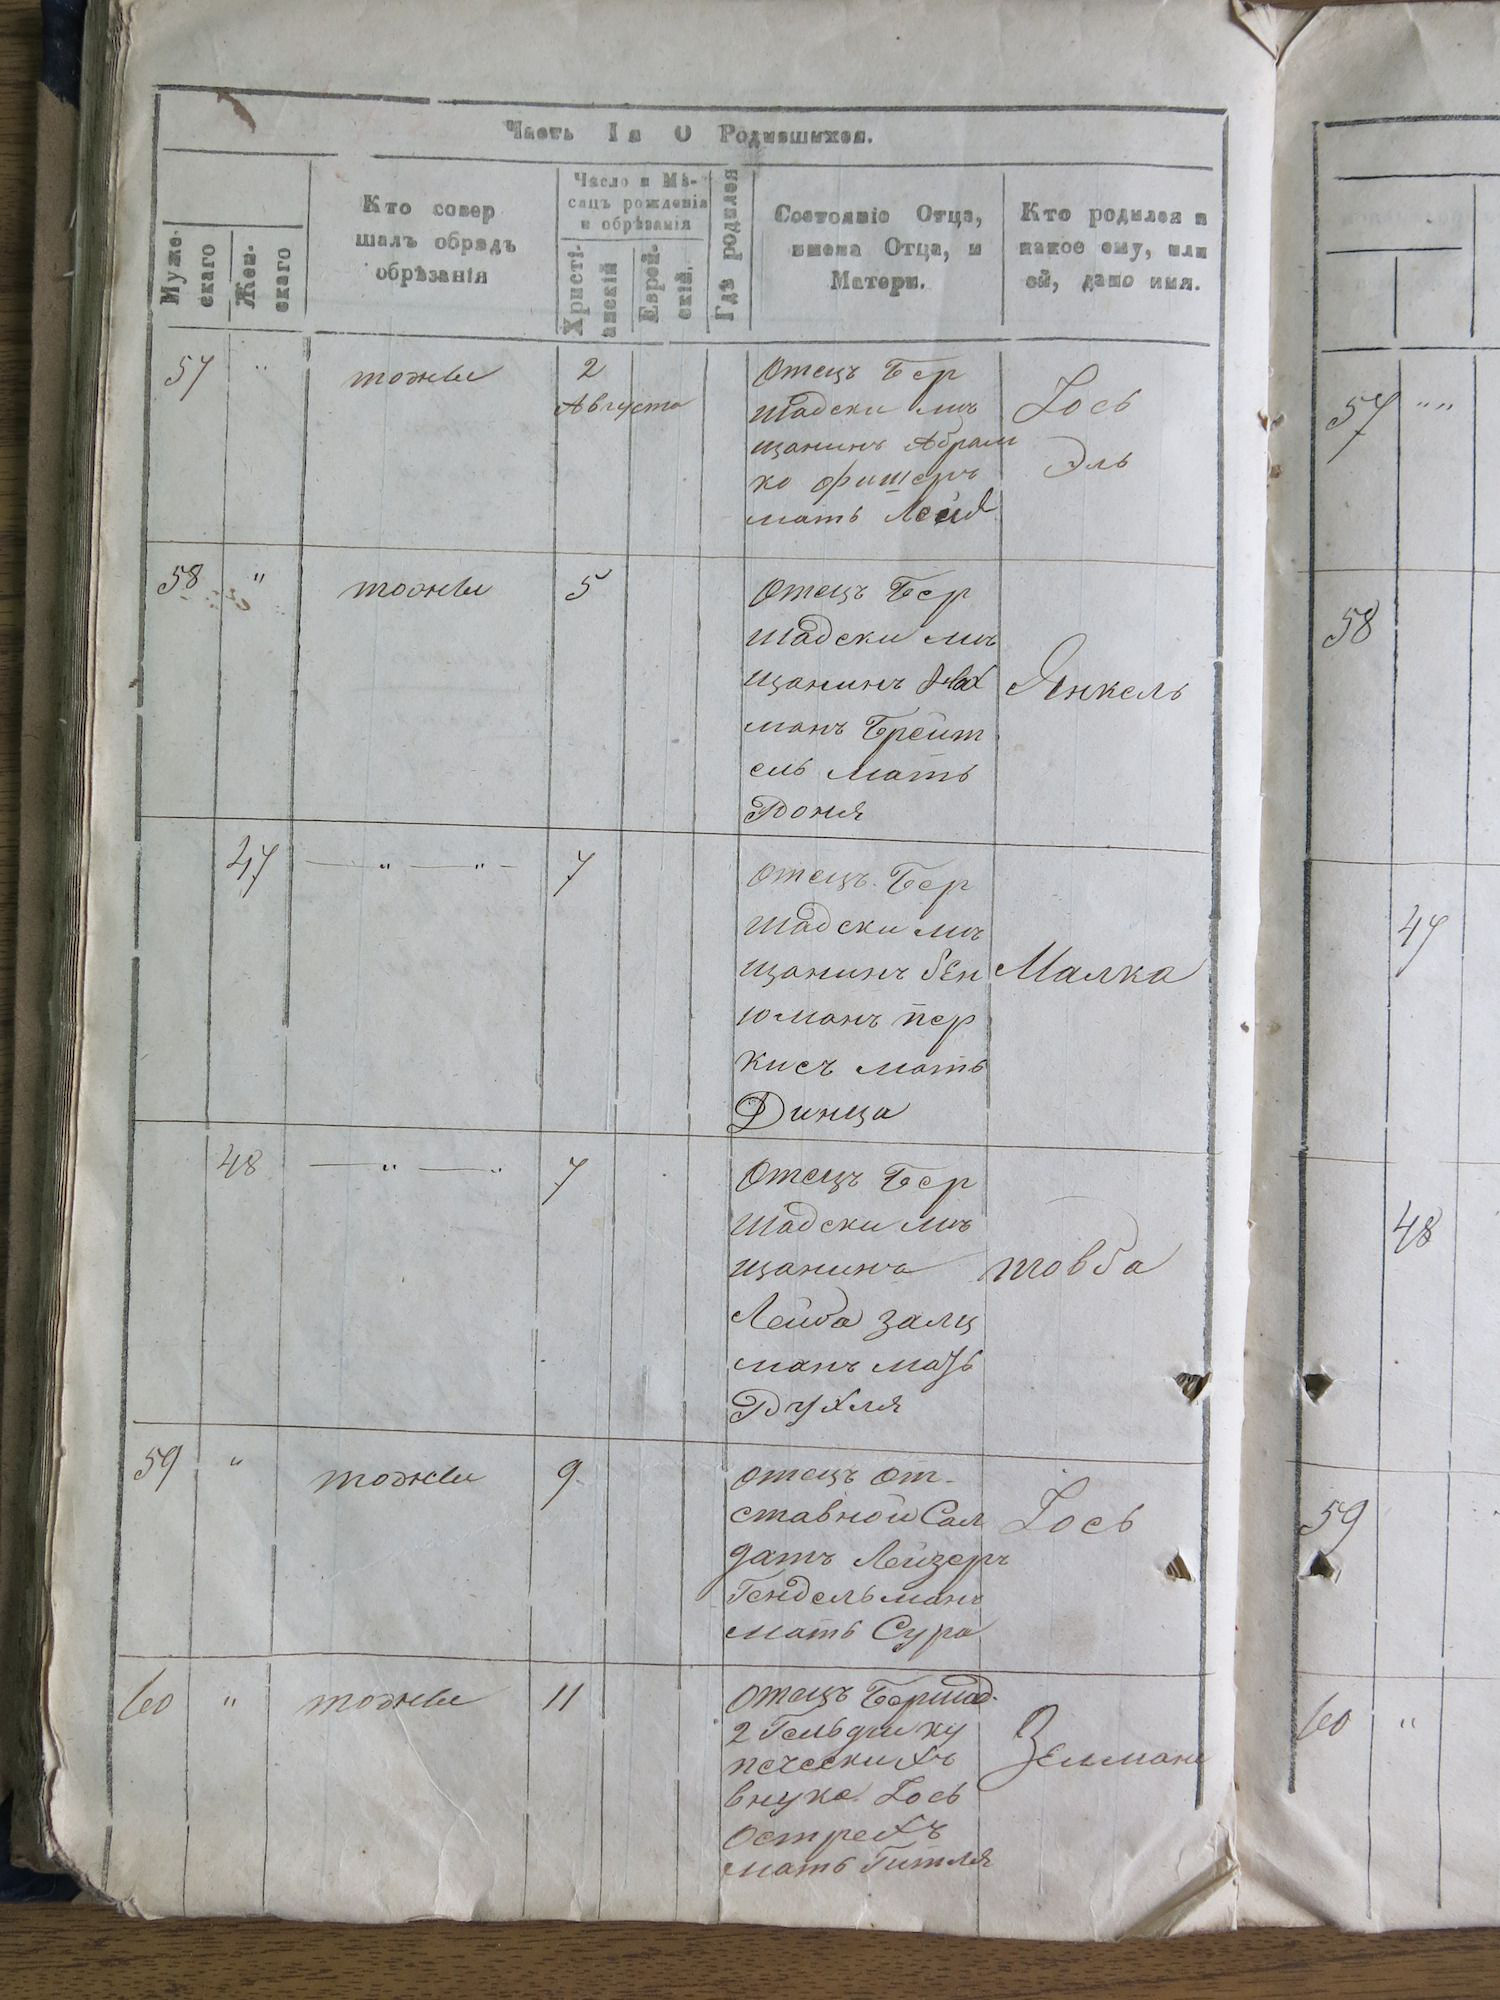 Часть Iя О Родившихся.
Муже-
скаго
Жен-
скаго
Кто совер
шалъ обрядъ
обрѣзанія
Число и Мѣ-
сяцъ рожденія
и обрѣзанія
Христі-
анскій
Еврей-
скій.
Гдѣ родился
Состояніе Отца,
имена Отца, и
Матери.
Кто родился и
какое ему, или
ей, дано имя.
57 " тожъе 2
Августа
Отецъ Бер
шадски мѣ
щанинъ Абрам
ко Фишеръ
мать Лейя
Іось
Эль
58 " тожъе 5
Отецъ Бер
шадски мѣ
щанинъ Нах
манъ Брейт
ель мать
Роня
Янкель
47 — " — " — 7
Отецъ Бер
шадски мѣ
щанинъ Бен
юманъ пер
кисъ мать
Динца
Малка
48 — " — " 7
Отецъ Бер
шадски мѣ
щанинъ
Лейба Залц
манъ мать
Рухля
товба
59 " тожъе 9
Отецъ От-
ставной Сал
датъ Лейзеръ
Гендельманъ
мать Сура
Іось
60 " тожъе 11
Отецъ Бершад.
2 Гельдии ку
печескихъ
внука Іось
Острехъ
мать Гитля
Зелманъ
57 " "
58
47
48
59
60 "